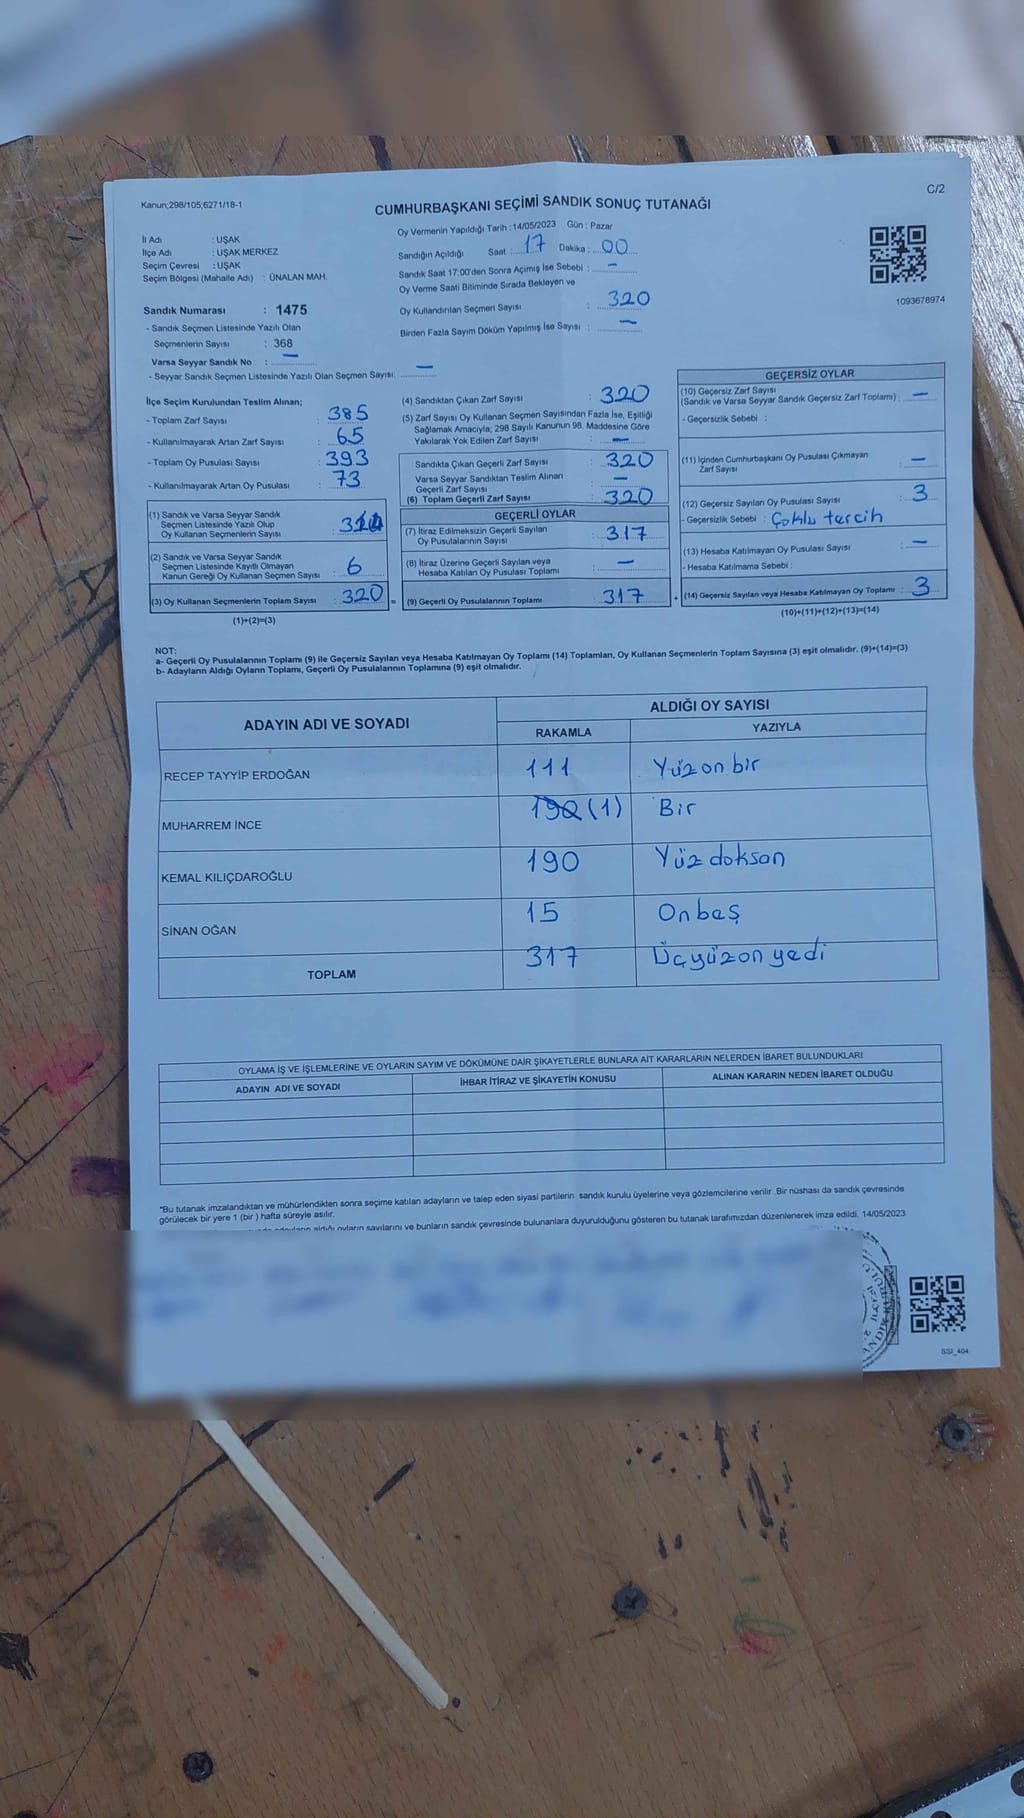 C/2
Kanun;298/105;6271/18-1
CUMHURBAŞKANI SEÇİMİ SANDIK SONUÇ TUTANAĞI
Oy Vermenin Yapıldığı Tarih :14/05/2023 Gün : Pazar
İl Adı : UŞAK
İlçe Adı : UŞAK MERKEZ
Seçim Çevresi : UŞAK
Seçim Bölgesi (Mahalle Adı) : ÜNALAN MAH.
Sandığın Açıldığı Saat : 17 Dakika : 00
Sandık Saat 17:00'den Sonra Açımış İse Sebebi : -
Oy Verme Saati Bitiminde Sırada Bekleyen ve
Oy Kullandırılan Seçmen Sayısı : 320
Birden Fazla Sayım Döküm Yapılmış İse Sayısı : -
1093678974
Sandık Numarası : 1475
- Sandık Seçmen Listesinde Yazılı Olan
Seçmenlerin Sayısı : 368
Varsa Seyyar Sandık No : -
- Seyyar Sandık Seçmen Listesinde Yazılı Olan Seçmen Sayısı: -
İlçe Seçim Kurulundan Teslim Alınan;
- Toplam Zarf Sayısı : 385
- Kullanılmayarak Artan Zarf Sayısı : 65
- Toplam Oy Pusulası Sayısı : 393
- Kullanılmayarak Artan Oy Pusulası : 73
(1) Sandık ve Varsa Seyyar Sandık
Seçmen Listesinde Yazılı Olup
Oy Kullanan Seçmenlerin Sayısı :
(2) Sandık ve Varsa Seyyar Sandık
Seçmen Listesinde Kayıtlı Olmayan
Kanun Gereği Oy Kullanan Seçmen Sayısı : 6
(3) Oy Kullanan Seçmenlerin Toplam Sayısı : 320 =
(1)+(2)=(3)
(4) Sandıktan Çıkan Zarf Sayısı : 320
(5) Zarf Sayısı Oy Kullanan Seçmen Sayısından Fazla İse, Eşitliği
Sağlamak Amacıyla; 298 Sayılı Kanunun 98. Maddesine Göre
Yakılarak Yok Edilen Zarf Sayısı : -
Sandıkta Çıkan Geçerli Zarf Sayısı : 320
Varsa Seyyar Sandıktan Teslim Alınan
Geçerli Zarf Sayısı : -
(6) Toplam Geçerli Zarf Sayısı : 320
GEÇERLİ OYLAR
(7) İtiraz Edilmeksizin Geçerli Sayılan
Oy Pusulalarının Sayısı : 317
(8) İtiraz Üzerine Geçerli Sayılan veya
Hesaba Katılan Oy Pusulası Toplamı : -
(9) Geçerli Oy Pusulalarının Toplamı 317 +
GEÇERSİZ OYLAR
(10) Geçersiz Zarf Sayısı
(Sandık ve Varsa Seyyar Sandık Geçersiz Zarf Toplamı) : -
- Geçersizlik Sebebi :
(11) İçinden Cumhurbaşkanı Oy Pusulası Çıkmayan
Zarf Sayısı : -
(12) Geçersiz Sayılan Oy Pusulası Sayısı : 3
- Geçersizlik Sebebi : Çoklu tercih
(13) Hesaba Katılmayan Oy Pusulası Sayısı : -
- Hesaba Katılmama Sebebi :
(14) Geçersiz Sayılan veya Hesaba Katılmayan Oy Toplamı : 3
(10)+(11)+(12)+(13)=(14)
NOT:
a- Geçerli Oy Pusulalarının Toplamı (9) ile Geçersiz Sayılan veya Hesaba Katılmayan Oy Toplamı (14) Toplamları, Oy Kullanan Seçmenlerin Toplam Sayısına (3) eşit olmalıdır. (9)+(14)=(3)
b- Adayların Aldığı Oyların Toplamı, Geçerli Oy Pusulalarının Toplamına (9) eşit olmalıdır.
ADAYIN ADI VE SOYADI
ALDIĞI OY SAYISI
RAKAMLA YAZIYLA
RECEP TAYYİP ERDOĞAN 111 Yüz on bir
MUHARREM İNCE 190 (1) Bir
KEMAL KILIÇDAROĞLU 190 Yüz doksan
SİNAN OĞAN 15 On beş
TOPLAM 317 Üçyüz on yedi
OYLAMA İŞ VE İŞLEMLERİNE VE OYLARIN SAYIM VE DÖKÜMÜNE DAİR ŞİKAYETLERLE BUNLARA AİT KARARLARIN NELERDEN İBARET BULUNDUKLARI
ADAYIN ADI VE SOYADI İHBAR İTİRAZ VE ŞİKAYETİN KONUSU ALINAN KARARIN NEDEN İBARET OLDUĞU
*Bu tutanak imzalandıktan ve mühürlendikten sonra seçime katılan adayların ve talep eden siyasi partilerin sandık kurulu üyelerine veya gözlemcilerine verilir .Bir nüshası da sandık çevresinde
görülecek bir yere 1 (bir ) hafta süreyle asılır.
aldığı oyların sayılarını ve bunların sandık çevresinde bulunanlara duyurulduğunu gösteren bu tutanak tarafımızdan düzenlenerek imza edildi. 14/05/2023
SSI_404